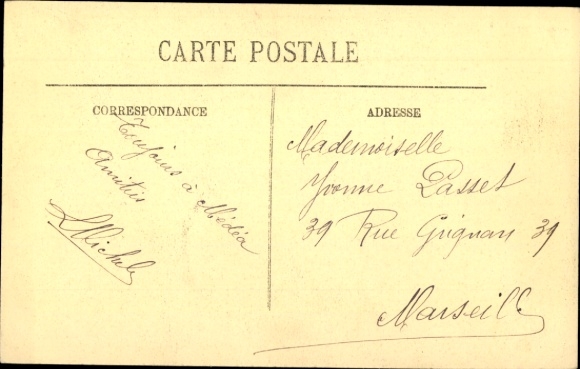 CARTE POSTALE
CORRESPONDANCE
Toujours à Médéa
Amitiés
LMichel
ADRESSE
Mademoiselle
Yvonne Passet
39 Rue Grignan 39
Marseille